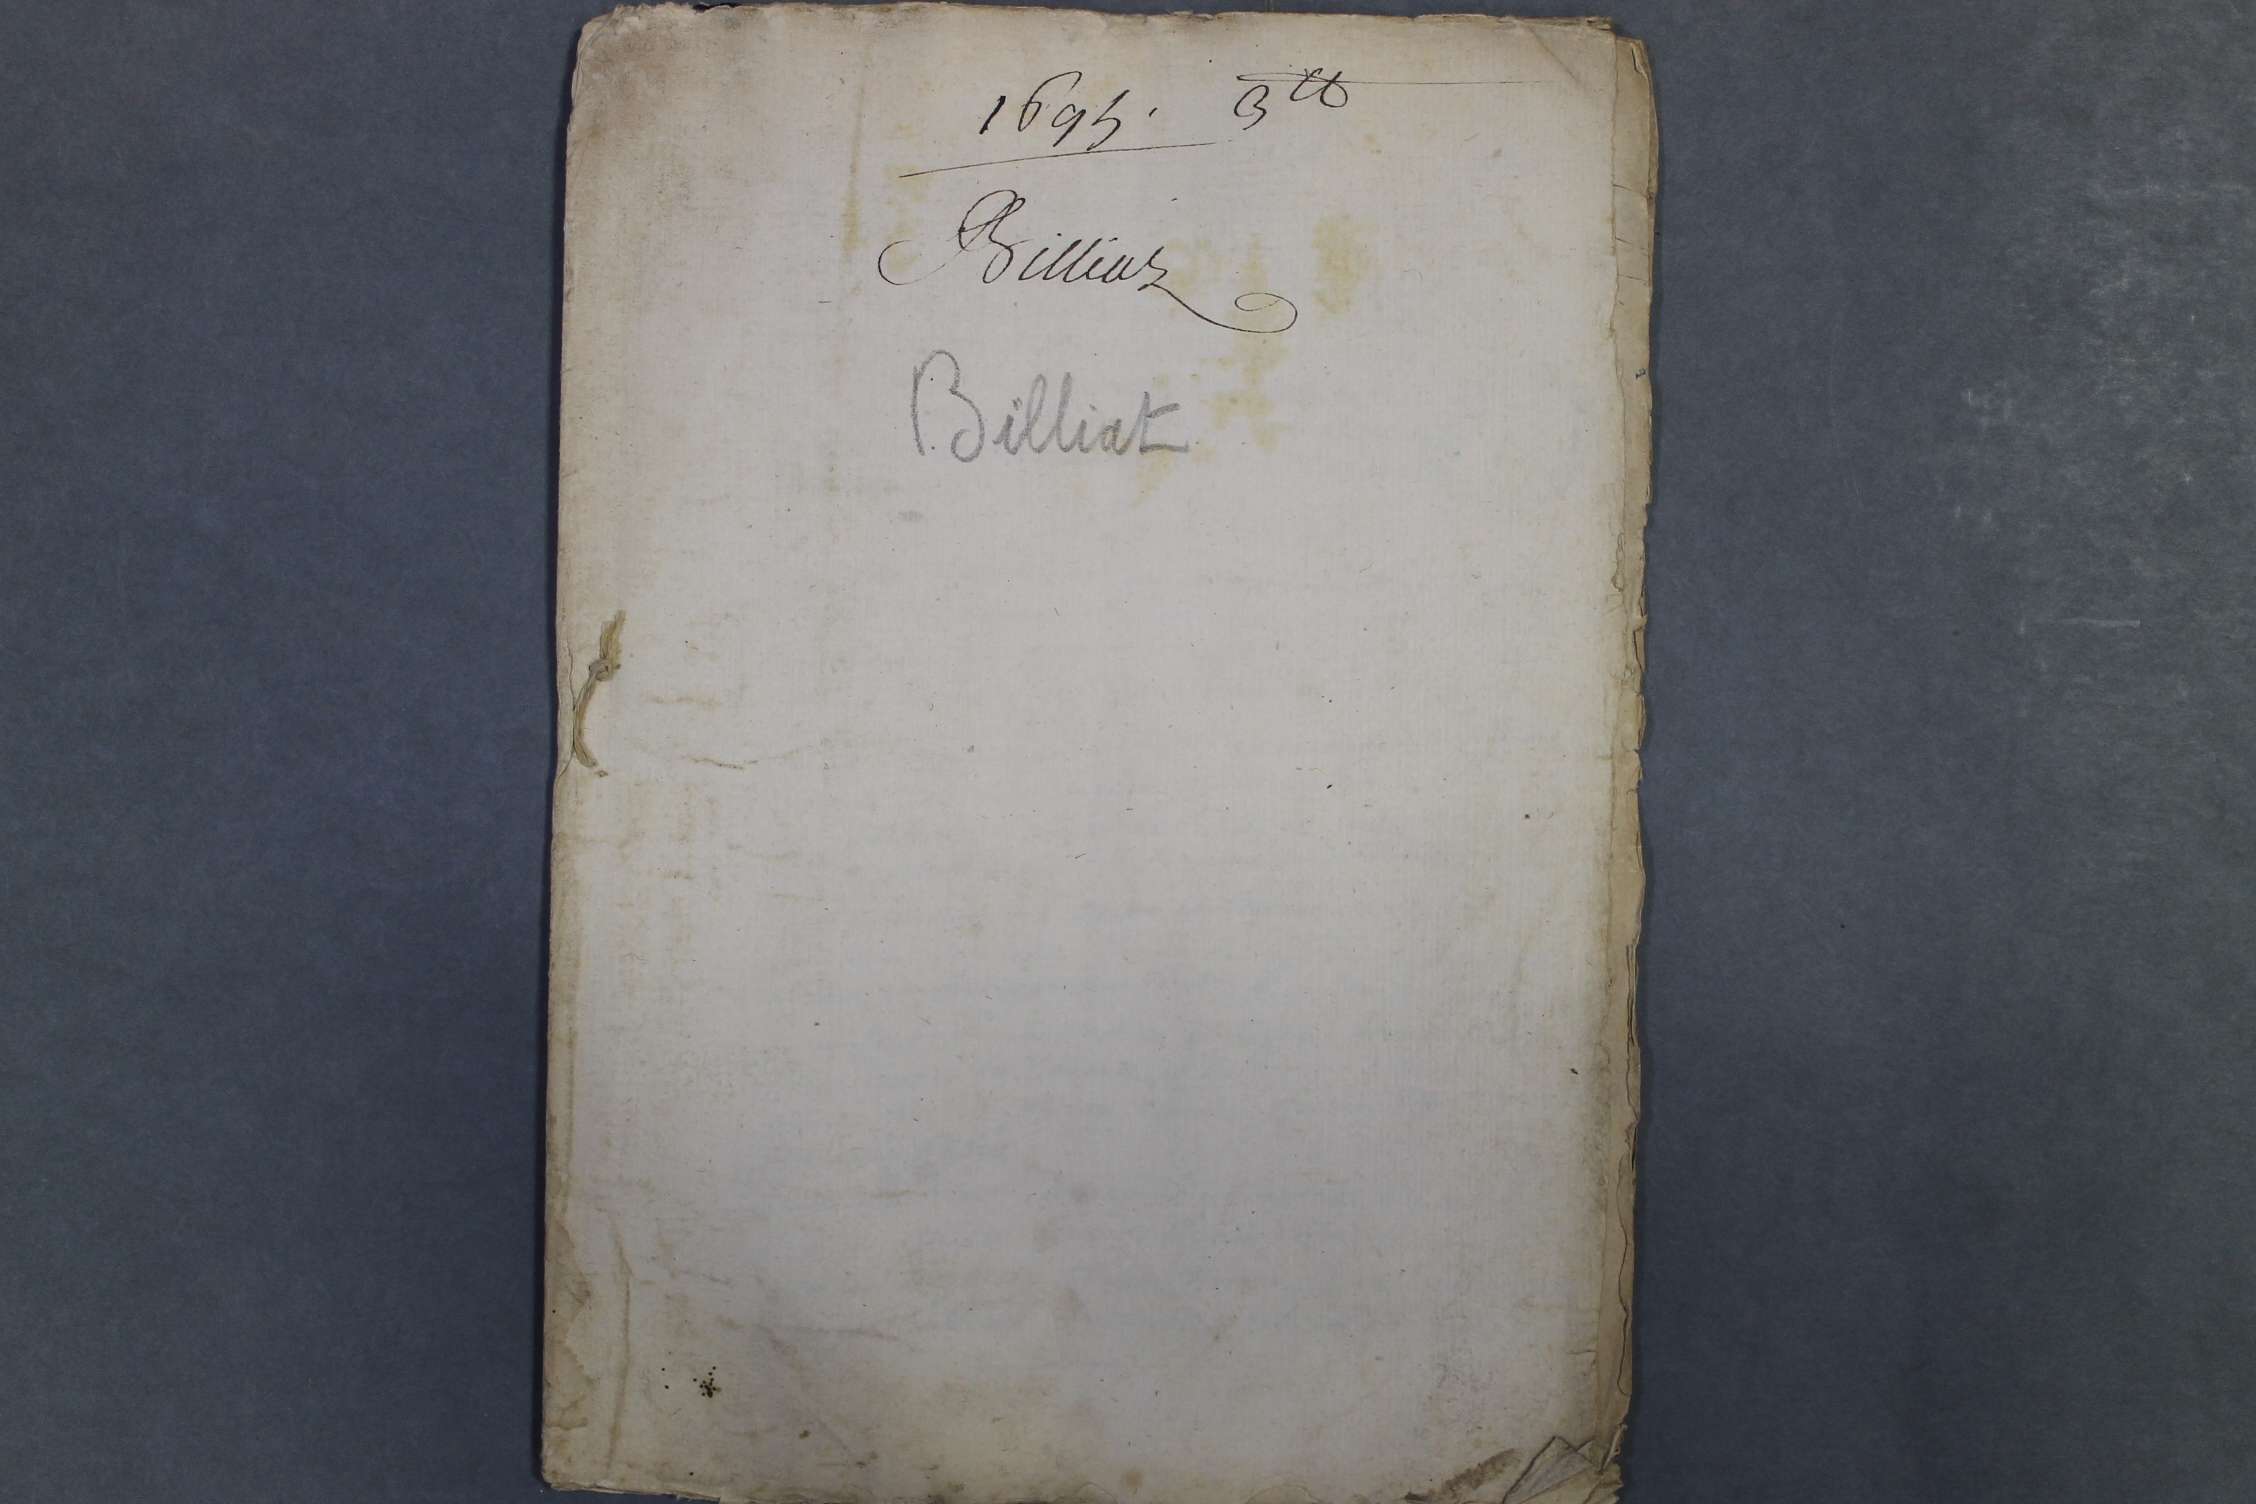 1695.
Billiat
Billiat